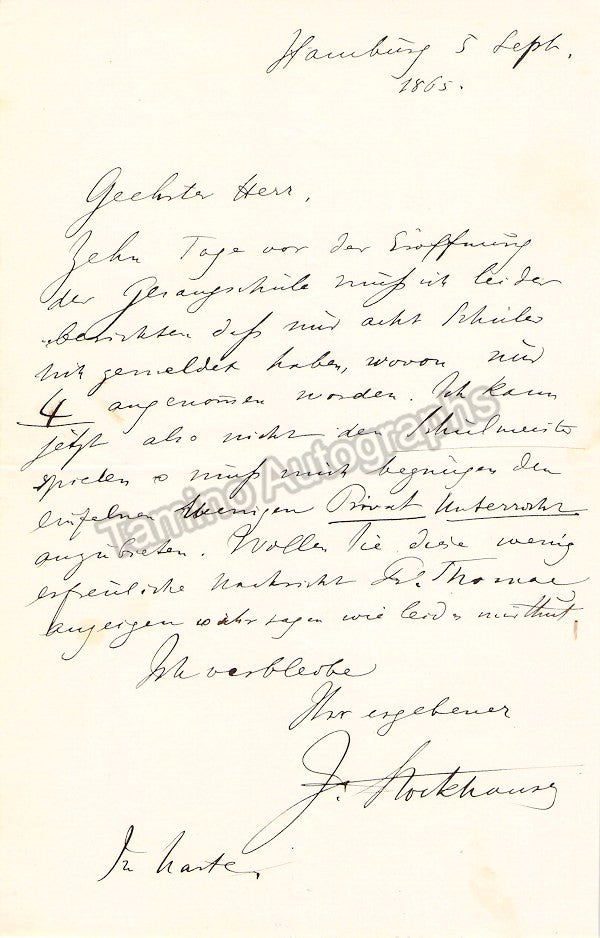 Hamburg 5 Sept.
1865.
Geehrter Herr,
Zehn Tage vor der Eröffnung
der Gesangschule muß ich leider
berichten daß nur acht Schüler
sich gemeldet haben, wovon nur
4 angenommen worden. Ich kann
jetzt also nicht den Schulmeister
spielen & muß mich begnügen den
einzelnen Wenigen Privat Unterricht
anzubieten. Wollen Sie diese wenig
erfreuliche Nachricht Frl. Thomae
anzeigen & ihr sagen wie leid es mir thut.
Ich verbleibe
Ihr ergebener
J. Stockhausen
In Haste.
Tamino Autographs